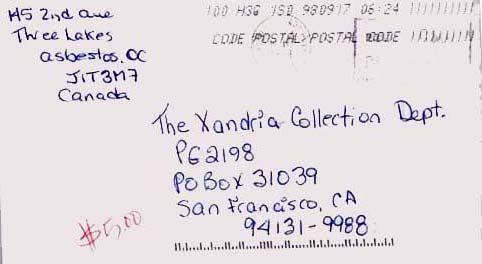 145 2nd Ave
Three Lakes
asbestos, QC
J1T3M7
Canada
100 H3G 1S0 980917 06:24
CODE POSTAL POSTAL CODE
The Xandria Collection Dept.
PG2198
PO Box 31039
San Francisco, CA
94131-9988
$5.00